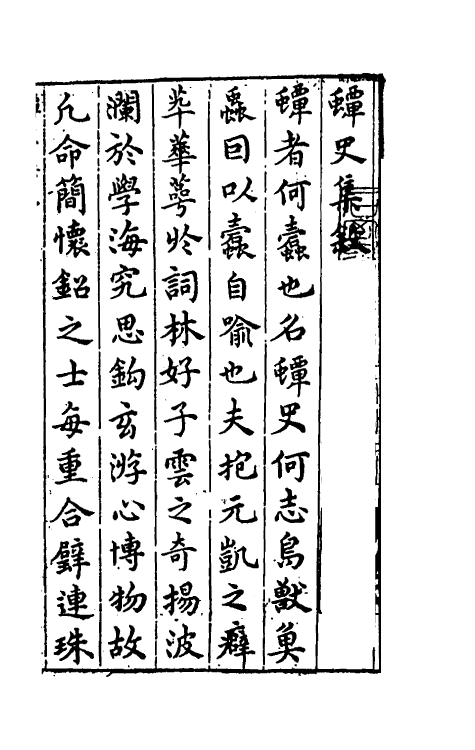 蟫史集敘
蟫者何蠹也名蟫史何志鳥獸奠
蟲曰以蠹自喻也夫抱元凱之癖
芈華萼於詞林好子雲之奇揚波
瀾於學海究思鈎玄游心博物故
凢命簡懷鉛之士每重合璧連珠